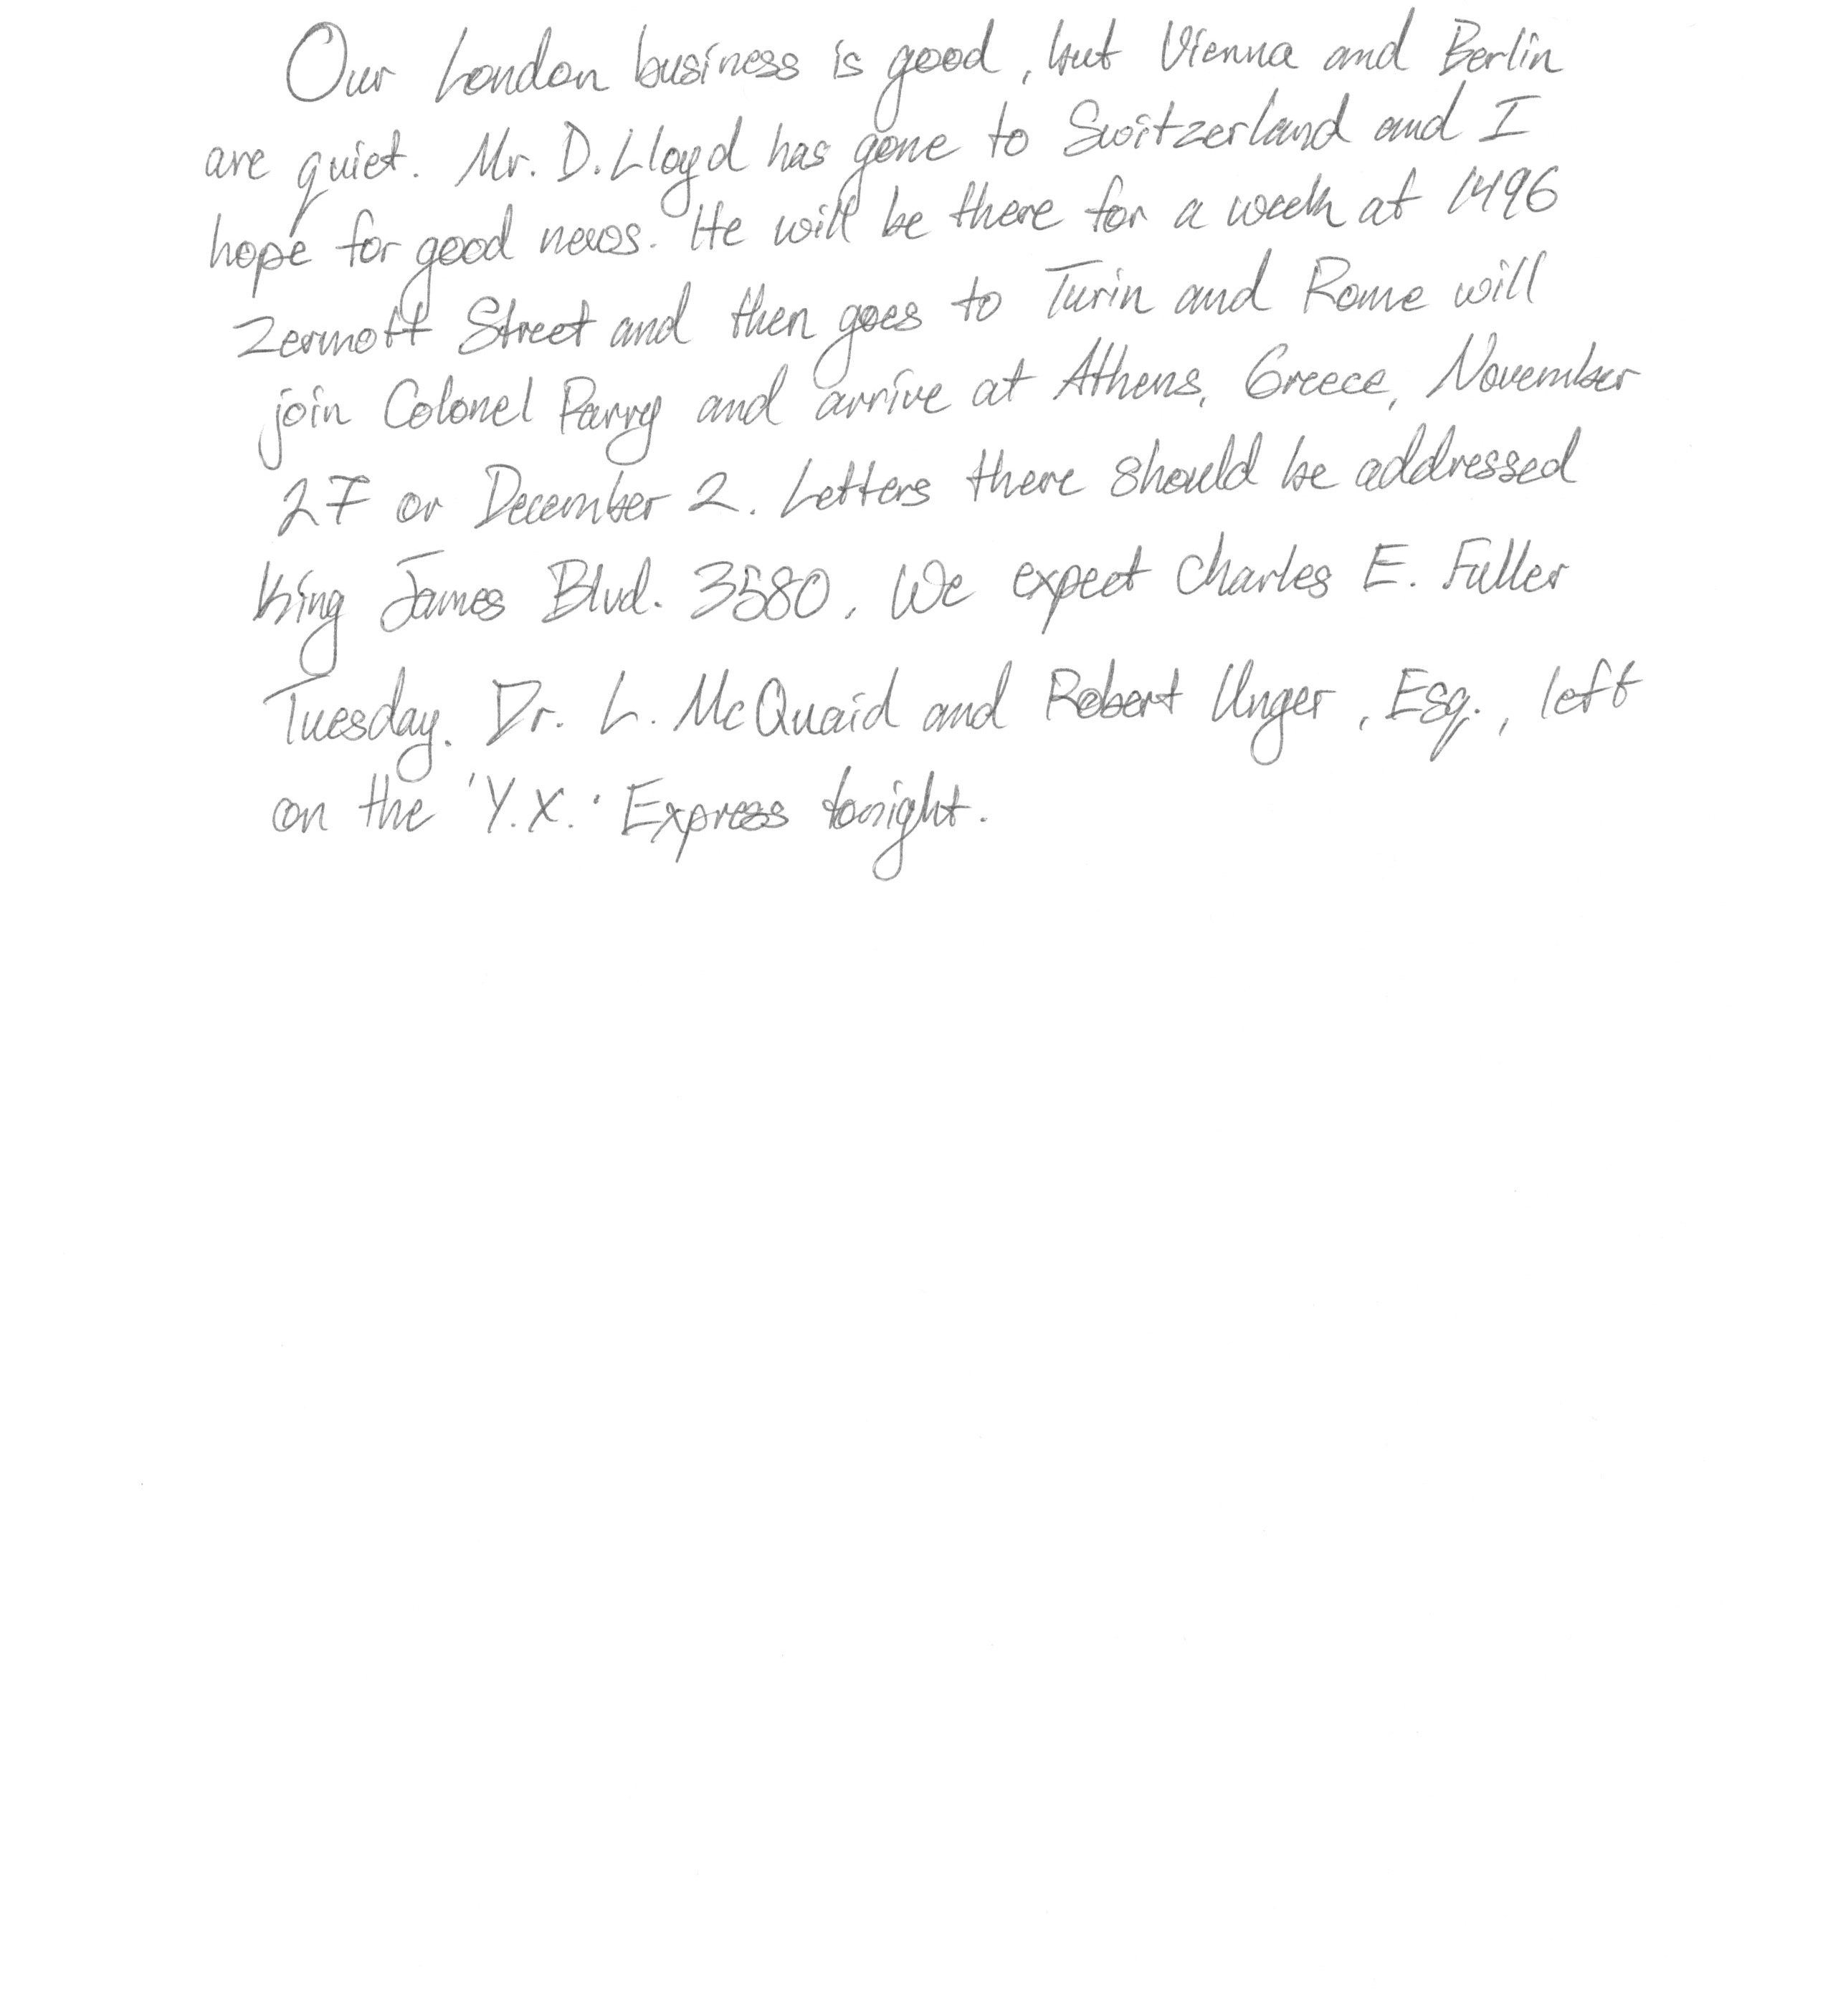 Our London business is good, but Vienna and Berlin
are quiet. Mr. D. Lloyd has gone to Switzerland and I
hope for good news. He will be there for a week at 1496
Zermott Street and then goes to Turin and Rome will
join Colonel Parry and arrive at Athens, Greece, November
27 or December 2. Letters there should be addressed
King James Blvd. 3580. We expect Charles E. Fuller
Tuesday. Dr. L. McQuaid and Robert Unger, Esq., left
on the 'Y.X.' Express tonight.